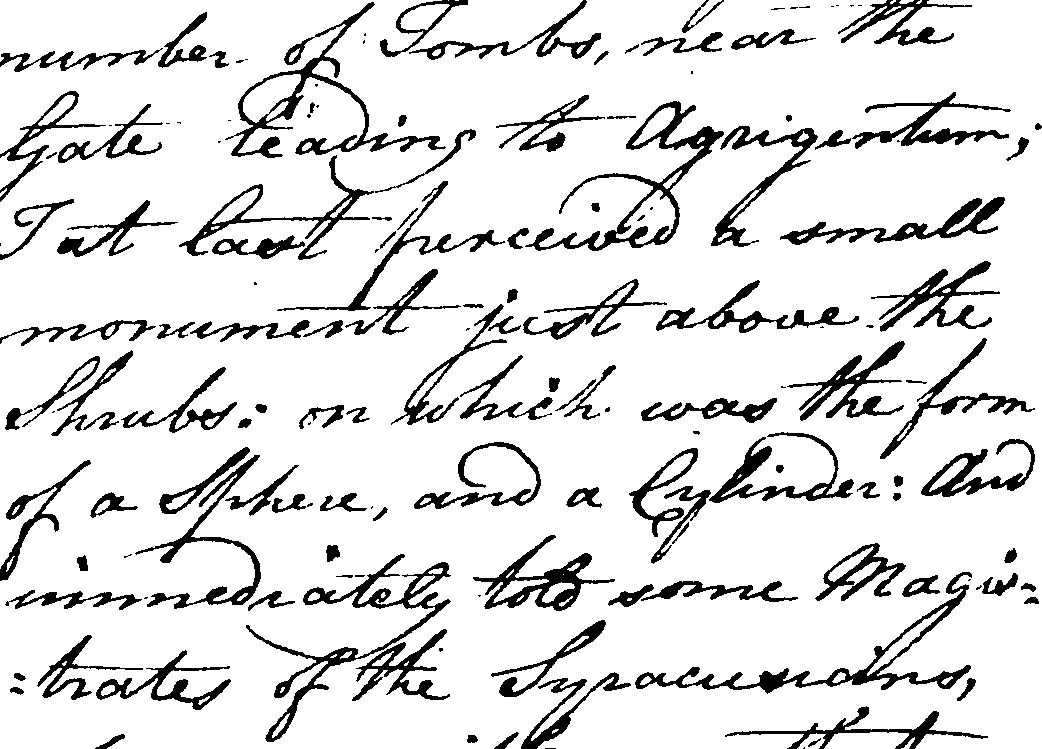 number of Tombs, near the
Gate leading to Agrigentum;
I at last perceived a small
monument just above the
Shrubs: on which was the form
of a Sphere, and a Cylinder: And
immediately told some Magis=
=trates of the Syracusians,